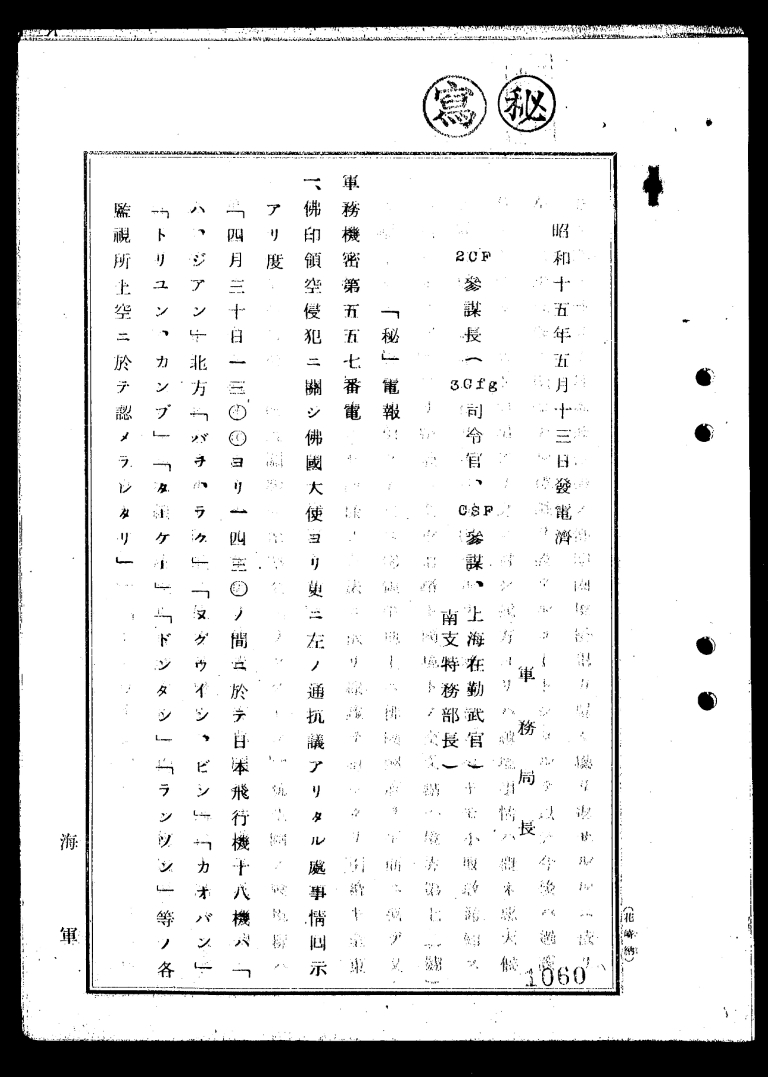 秘
寫
昭和十五年五月十三日發電濟
軍務局長
2CF參謀長(3Cfg司令官、CSF參謀、上海在勤武官)
南支特務部長)
「秘」電報
軍務機密第五五七番電
一、佛印領空侵犯ニ關シ佛國大使ヨリ更ニ左ノ通抗議アリタル處事情回示
アリ度
「四月三十日一三〇〇ヨリ一四三〇ノ間ニ於テ日本飛行機十八機ハ「
ハ、ジアン」北方「バチ、ラク」「ヌグウイン、ビン」「カオバン」
「トリユン、カンブ」「タエケ」「ドンタン」「ランソン」等ノ各
監視所上空ニ於テ認メラレタリ」
海軍
(花崎納)
1060